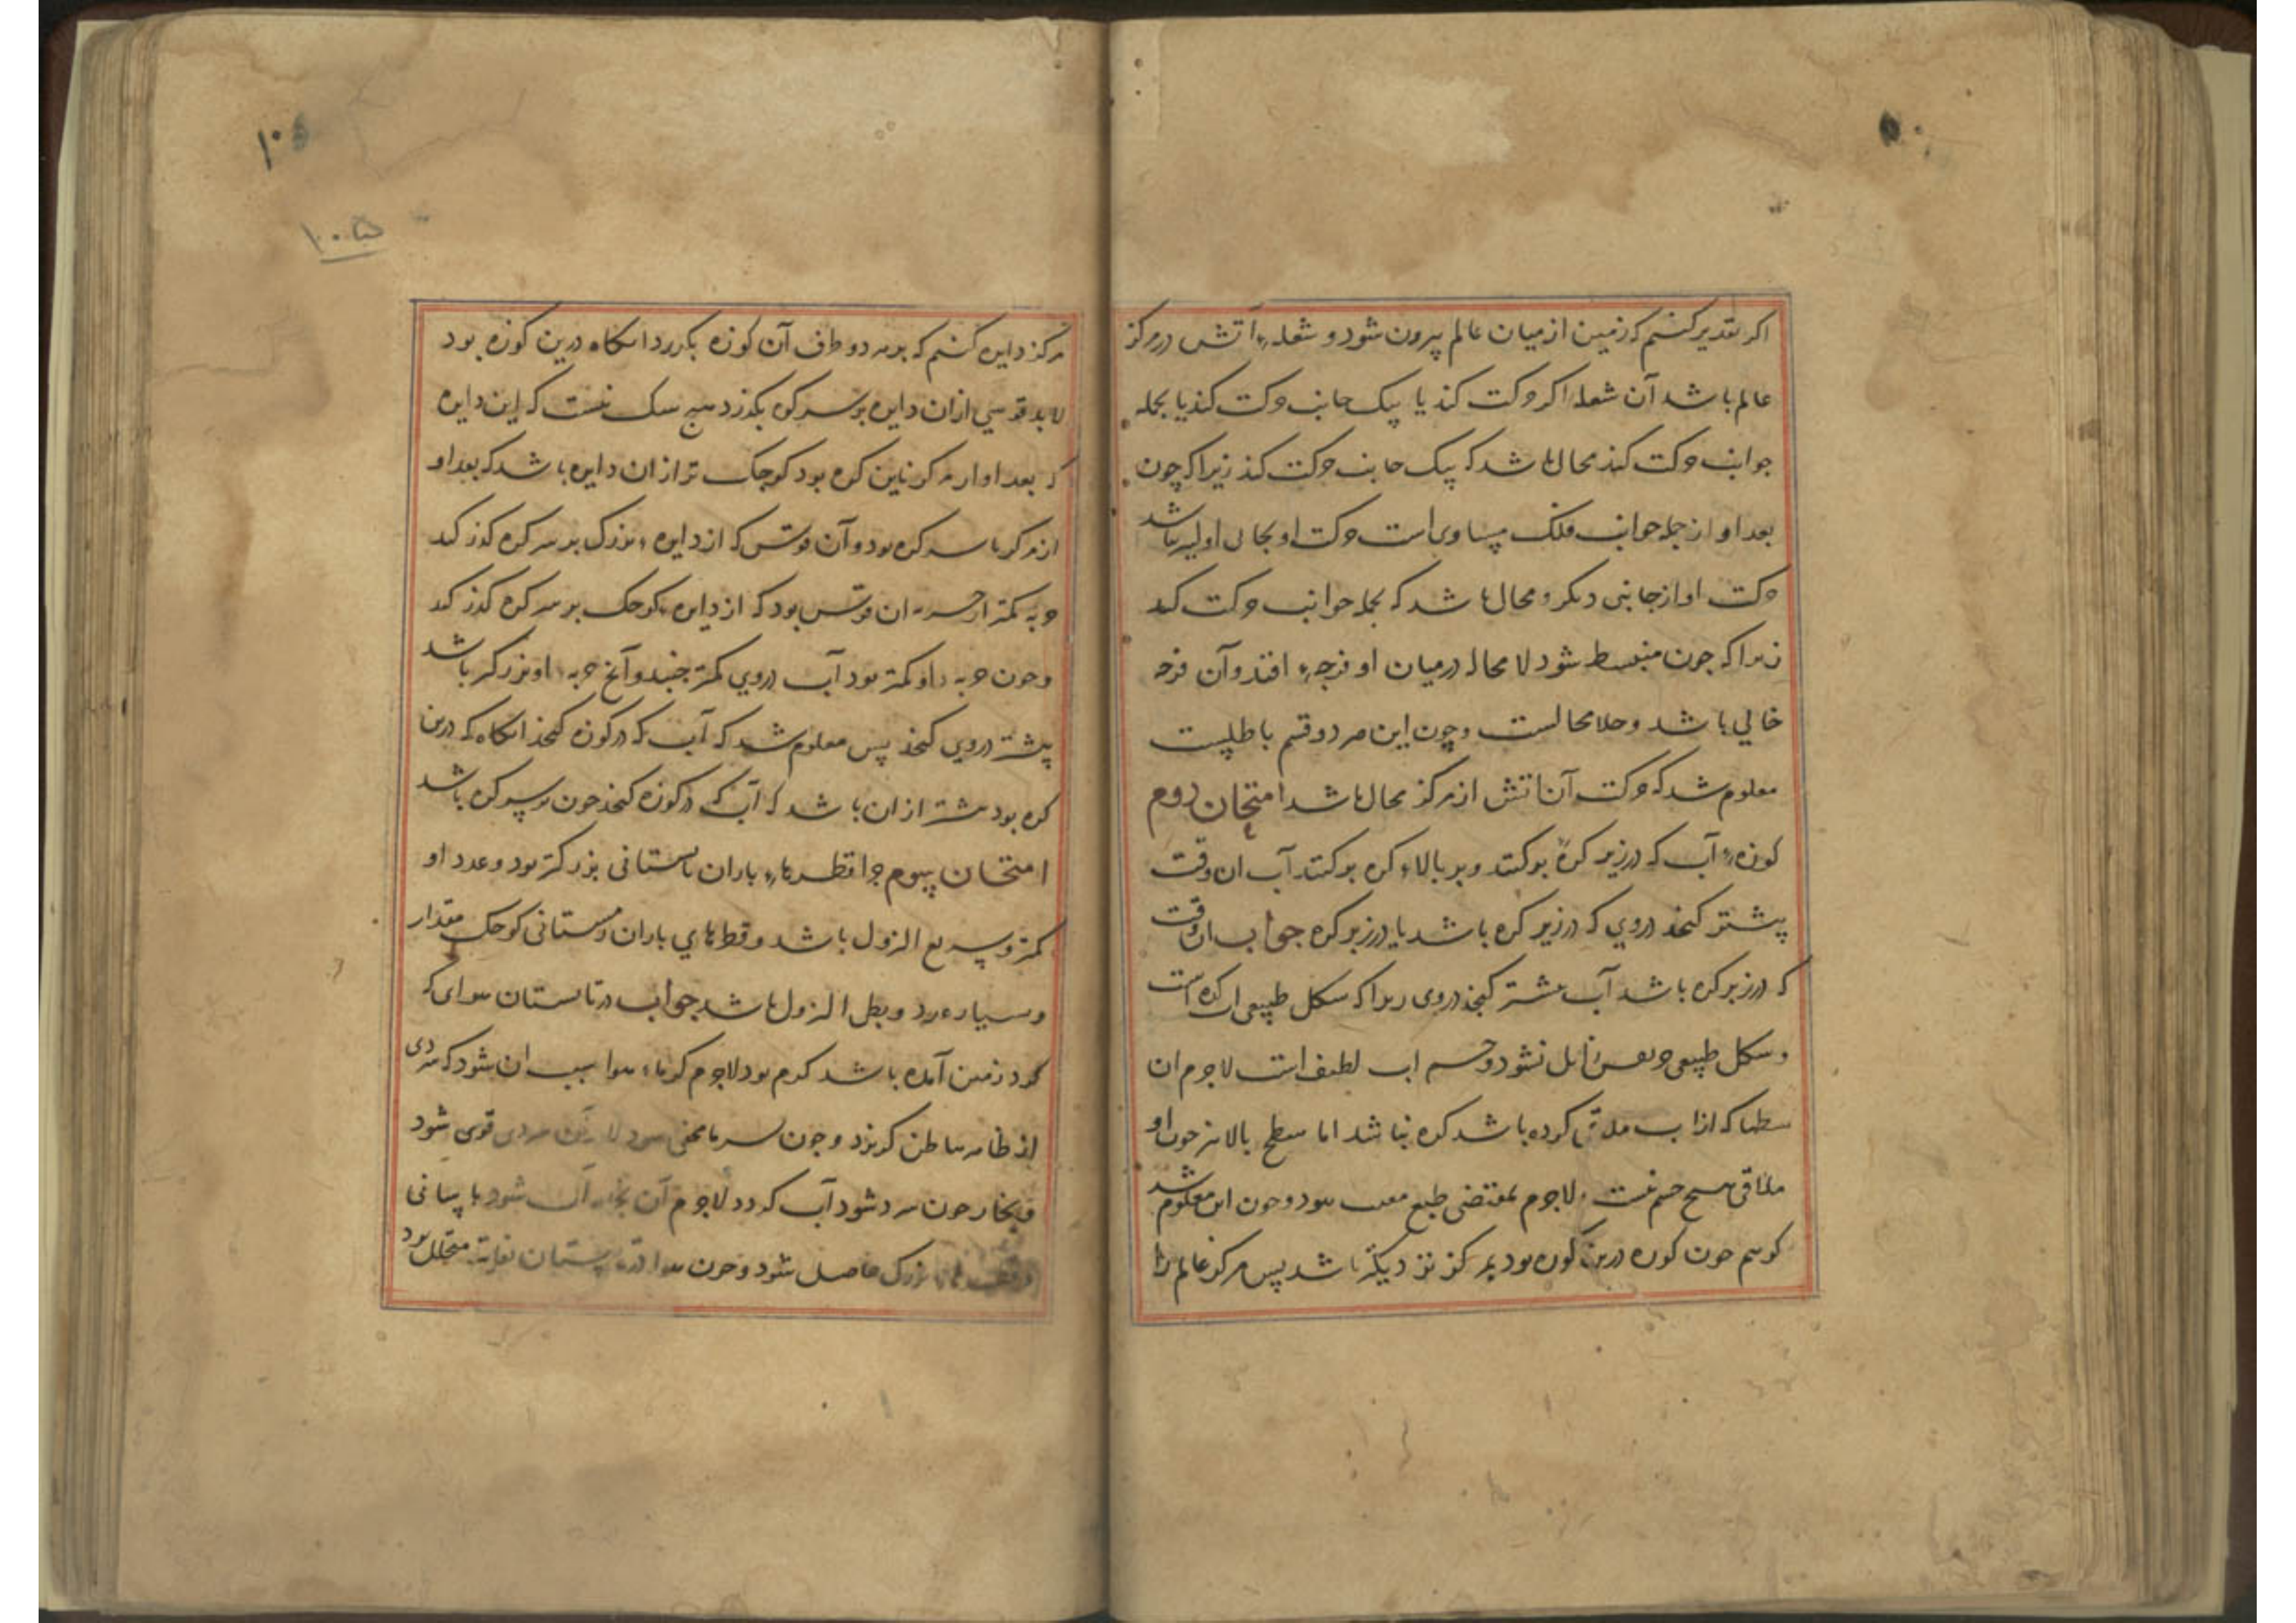 اکر تقدیر کنیم که زمین از میان عالم بیرون شود و شعلهٔ آتش در مرکز
عالم باشد آن شعله اکر حرکت کند یا بیک جانب حرکت کند یا بجمله
جوانب حرکت کند محال باشد که بیک جانب حرکت کند زیرا که چون
بعد او از جمله جوانب فلک مساوی است حرکت او بجانبی اولیتر باشد
حرکت او از جانبی دیکر و محال باشد که بجمله جوانب حرکت کند
زیرا که چون منبسط شود لا محاله در میان او فرجهٔ افتد و آن فرجه
خالی باشد و خلا محالست و چون این هر دو قسم باطلست
معلوم شد که حرکت آن آتش از مرکز محال باشد امتحان دوم
کوزهٔ آب که در زیر کوه بر کشند و بر بالاء کوه بر کشند آب ان وقت
بیشتر کنجد در وی که در زیر کوه باشد یا در زبر کوه جواب ان وقت
که در زیر کوه باشد آب بیشتر کنجد در وی زیرا که شکل طبیعی آب کره است
و شکل طبیعی جز بعسر زایل نشود و جسم اب لطیف است لاجرم ان
سطحها که از اب ملاقی کوزه باشد کره نباشد اما سطح بالایین چون او
ملاقی هیچ جسم نیست لاجرم بمقتضی طبع محدب شود و چون این معلوم شد
کوییم چون کوزه در بن کوه بود بمرکز نزدیکتر باشد پس مرکز عالم را
مرکز دایره کنیم که بر هر دو طرف آن کوزه بکذرد انکاه در بن کوزه بود
لابد قوسی از ان دایره بر سر کوه بکذرد هیچ شک نیست که این دایره
که بعد او از مرکز تا بن کوه بود کوچک تر از ان دایره باشد که بعد او
از مرکز تا سر کوه بود و آن قوس که از دایرهٔ بزرک بر سر کوه کذر کند
حدبه کمتر از حدبه ان قوس بود که از دایره کوچک بر سر کوه کذر کند
و چون حدبه او کمتر بود آب در وی کمتر کنجد و آنچ حدبه او بزرکتر باشد
بیشتر در وی کنجد پس معلوم شد که آب که در کوزه کنجد انکاه که در بن
کوه بود بیشتر از ان باشد که آب که در کوزه کنجد چون بر سر کوه باشد
امتحان سوم چرا قطرهاء باران تابستانی بزرکتر بود و عدد او
کمتر و سریع النزول باشد و قطرهای باران زمستانی کوچک مقدار
و بسیار عدد و بطی النزول باشد جواب در تابستان هوای که
کرد زمین آمده باشد کرم بود لاجرم کرماء هوا سبب ان شود که سردی
از ظاهر بباطن کریزد و چون سرما مخفی شود لاجرم سردی قوی شود
و بخار چون سرد شود آب کردد لاجرم آن بخار آب شود باسانی
و قطرهاء بزرک حاصل شود و چون هوا در تابستان بغایت متخلل بود